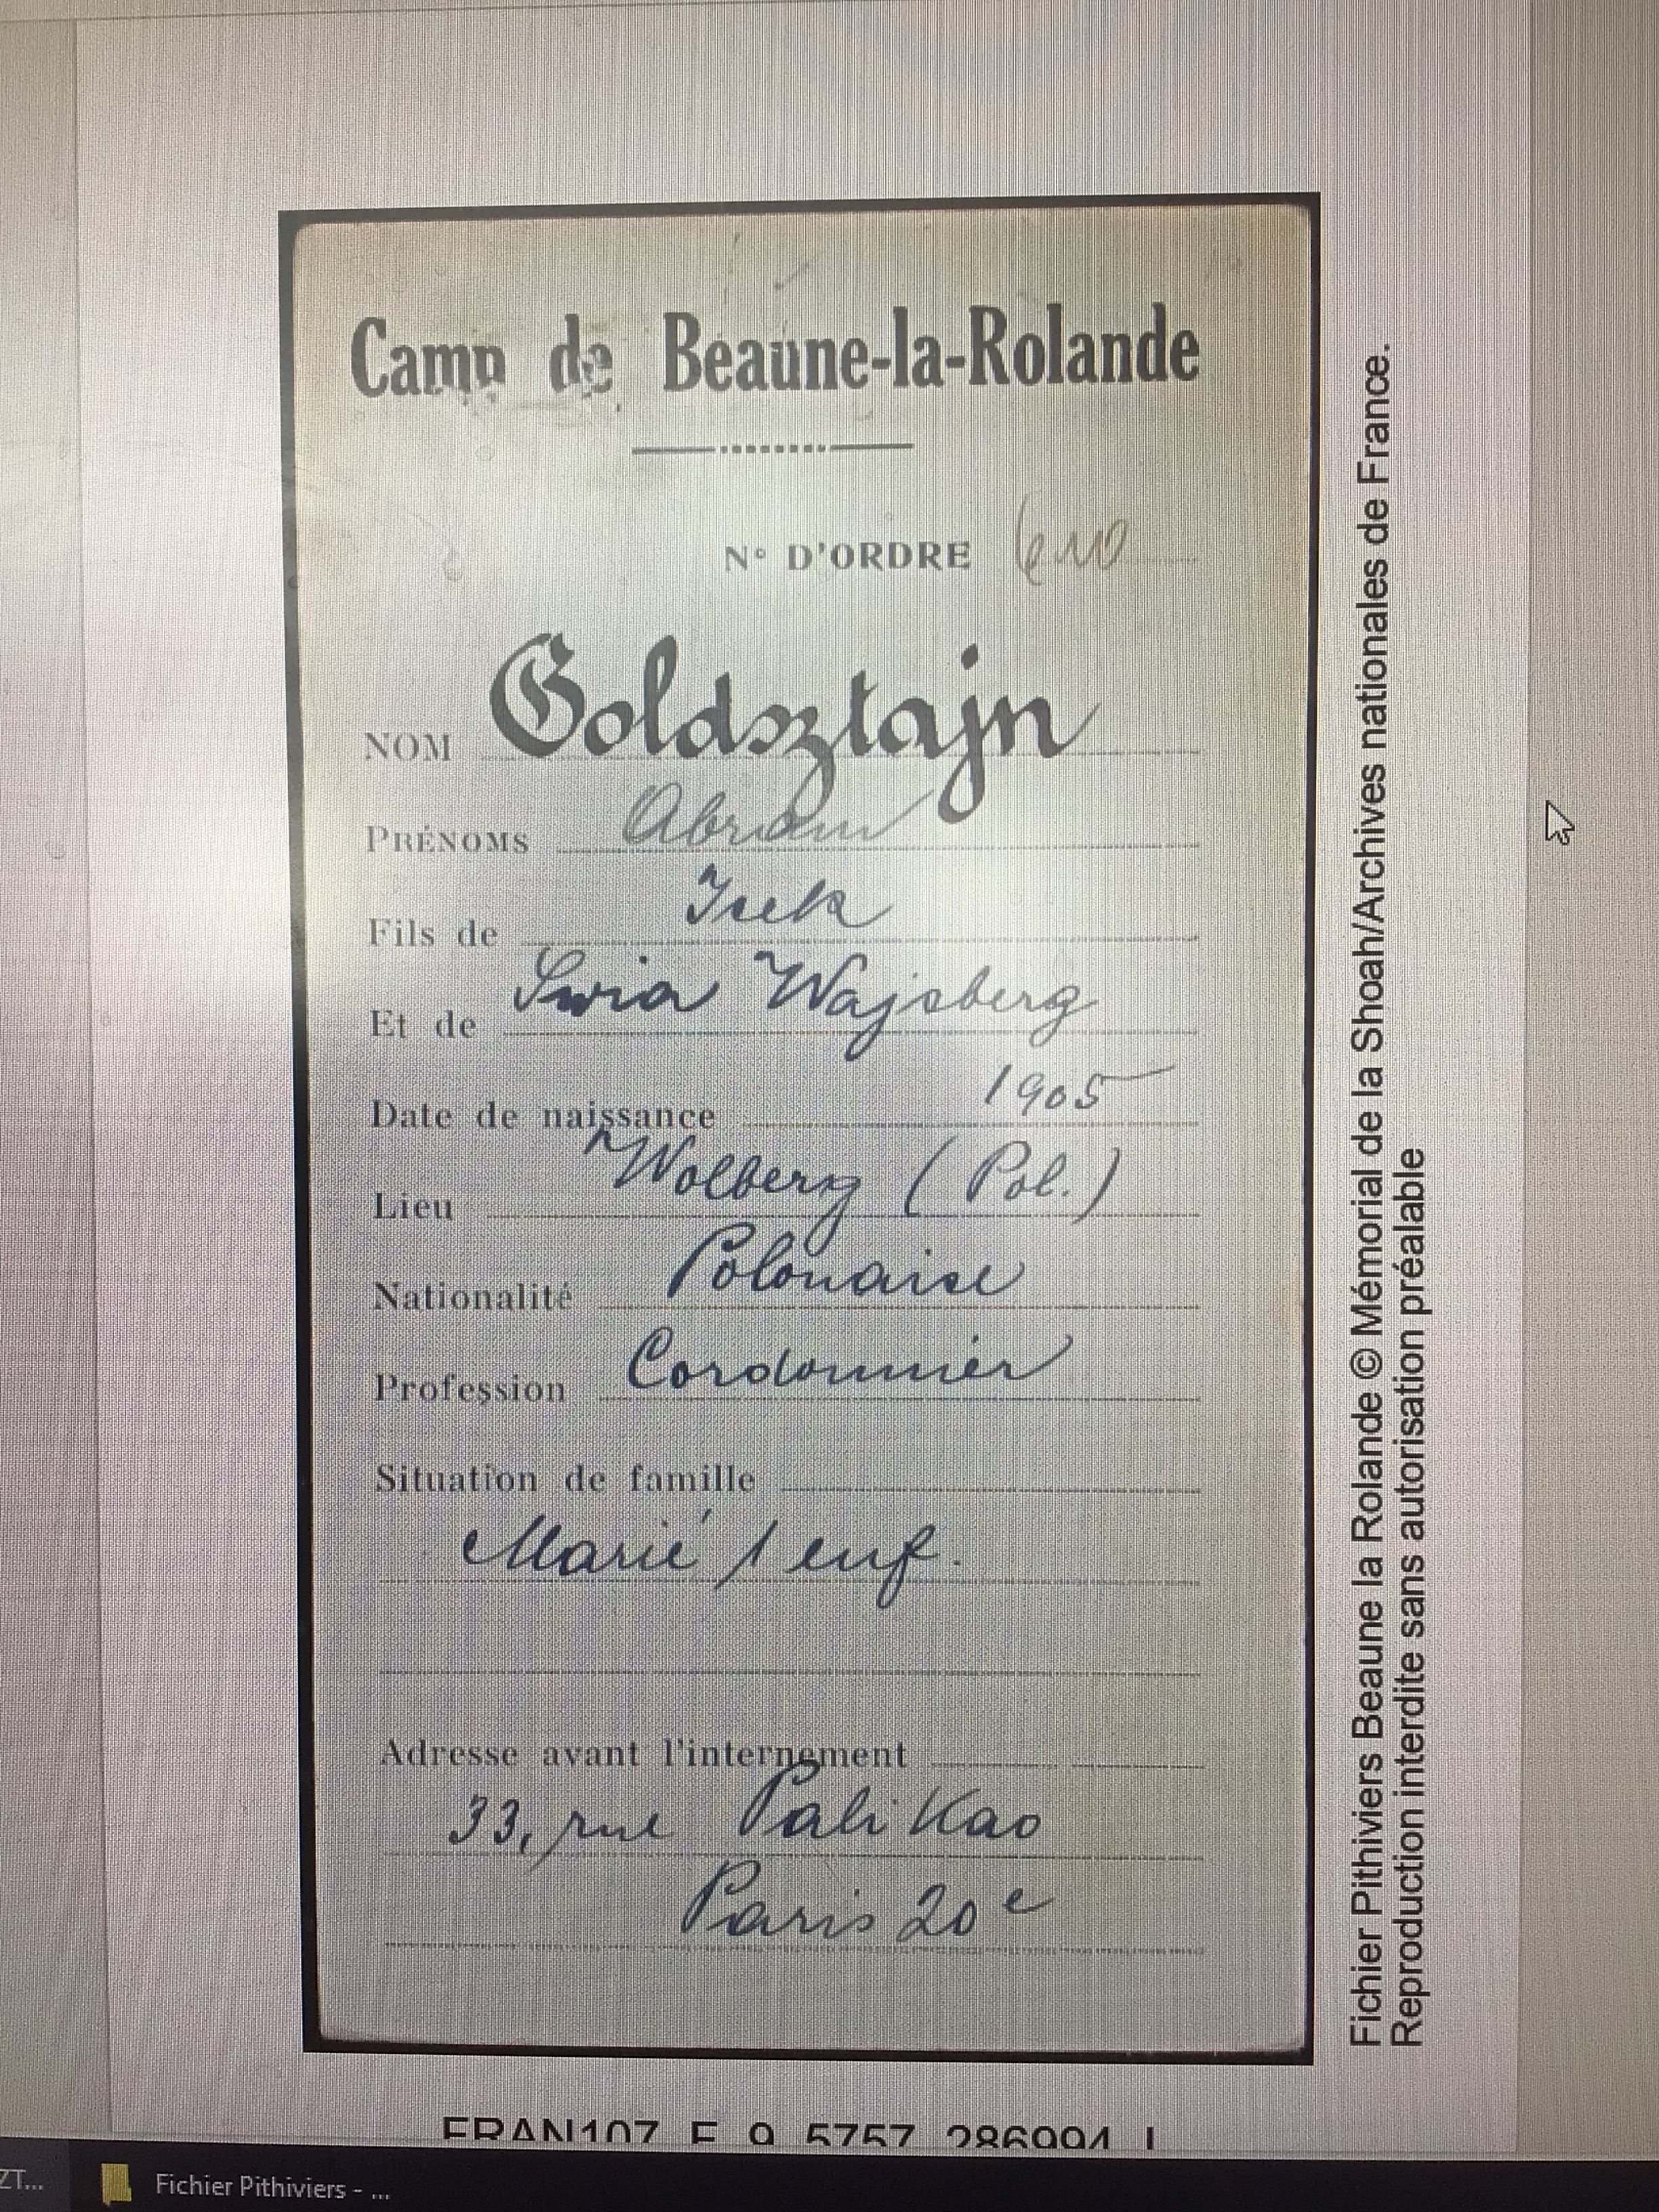 Camp de Beaune-la-Rolande
N° D'ORDRE
NOM Goldsztajn
PRÉNOMS Abram
Fils de Icek
Et de Wajsberg
Date de naissance 1905
Lieu Wolberg (Pol.)
Nationalité Polonaise
Profession Cordonnier
Situation de famille
Marié 1 enf.
Adresse avant l'internement
33, rue Pali Kao
Paris 20e
Fichier Pithiviers Beaune la Rolande © Mémorial de la Shoah/Archives nationales de France.
Reproduction interdite sans autorisation préalable
FRAN107 F 9 5757 286994 L
ZT...
Fichier Pithiviers - ...